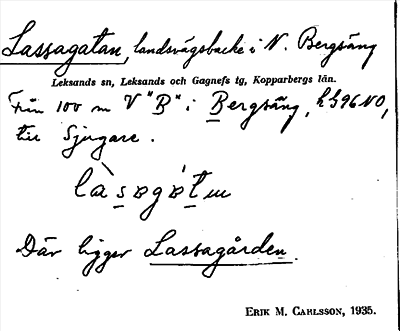 Lassagatan, landsvägsbacke i N. Bergsäng
Leksands sn, Leksands och Gagnefs tg, Kopparbergs län.
Från 100 m V "B" i Bergsäng, h 596 NO,
till Sjugare.
là s ɐ g ɐ́ t ɯ
Där ligger Lassagården.
ERIK M. CARLSSON, 1935.